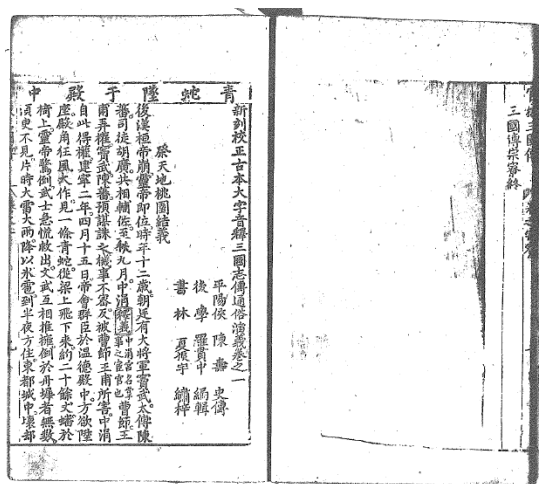 三國傳宗寮終
青蛇墜于殿中
新刻校正古本大字音釋三國志傳通俗演義卷之一
平陽侯 陳壽 史傳
後學 羅貫中 編輯
書林 夏振宇 繡梓
祭天地桃園結義
後漢桓帝崩靈帝即位時年十二歲朝廷有大將軍竇武太傅陳
蕃司徒胡廣共相輔佐至秋九月中涓釋義中涓官名掌事之宦官也曹節王
甫弄權竇武陳蕃預謀誅之機事不密反被曹節王甫所害中涓
自此得權建寧二年四月十五日帝會群臣於溫德殿中方欲陞
座殿角狂風大作見一條青蛇從梁上飛下來約二十餘丈蟠於
椅上靈帝驚倒武士急慌救出文武互相推擁倒於丹墀者無數
須臾不見片時大雷大雨降以氷雹到半夜方住東都城中壞却